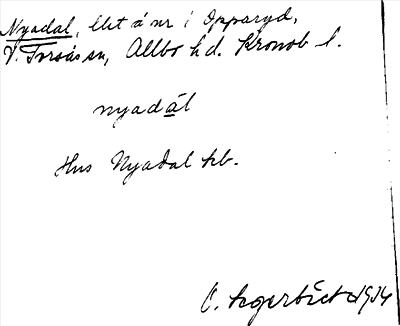 Nyadal, lht å nr i Opparyd,
V. Torsås sn, Allbo hd. Kronob l.
nyadál
Hus Nyadal kb.
1914